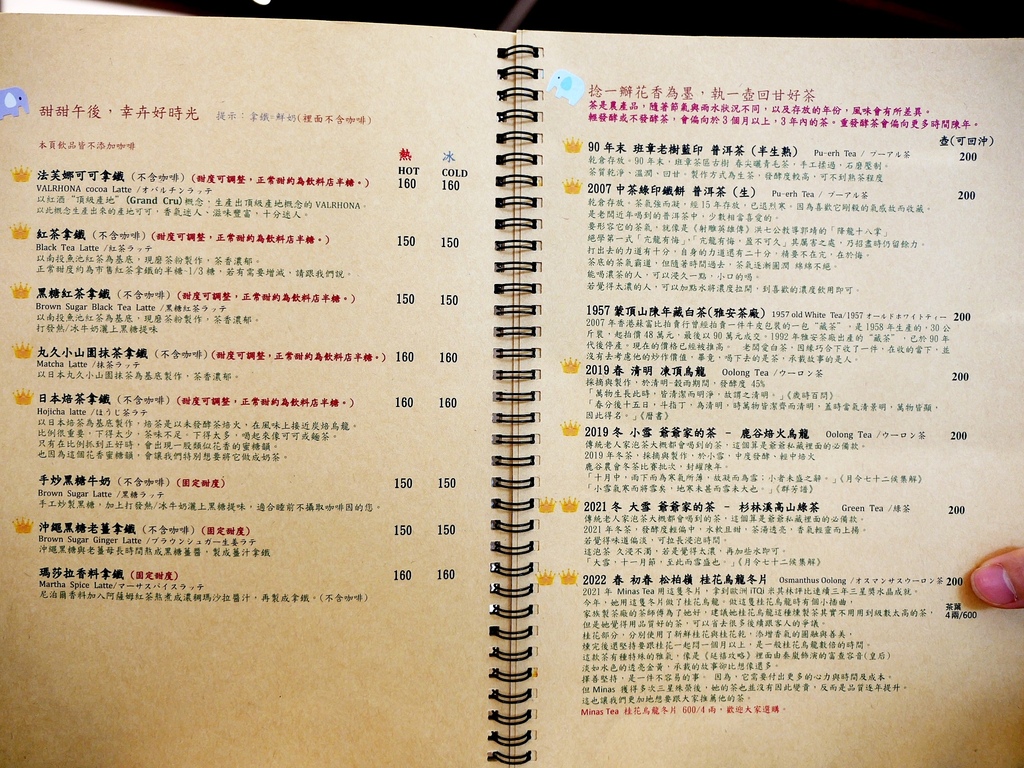 甜甜午後，幸卉好時光 提示：拿鐵-鮮奶(裡面不含咖啡)
本頁飲品皆不添加咖啡
熱 冰
HOT COLD
法芙娜可可拿鐵 (不含咖啡) (甜度可調整，正常甜約為飲料店半糖。) 160 160
VALRHONA cocoa Latte /オバルチンラッテ
以紅酒"頂級產地" (Grand Cru) 概念，生產出頂級產地概念的 VALRHONA.
以此概念生產出來的產地可可，香氣迷人、滋味豐富，十分迷人。
紅茶拿鐵 (不含咖啡) (甜度可調整，正常甜約為飲料店半糖。) 150 150
Black Tea Latte /紅茶ラッテ
以南投魚池紅茶為基底，現磨茶粉製作，茶香濃郁。
正常甜度約為市售紅茶拿鐵的半糖-1/3糖，若有需要增減，請跟我們說。
黑糖紅茶拿鐵 (不含咖啡) (甜度可調整，正常甜約為飲料店半糖。) 150 150
Brown Sugar Black Tea Latte /黑糖紅茶ラッテ
以南投魚池紅茶為基底，現磨茶粉製作，茶香濃郁。
打發熱/冰牛奶灑上黑糖提味
丸久小山園抹茶拿鐵 (不含咖啡) (甜度可調整，正常甜約為飲料店半糖。) 160 160
Matcha Latte /抹茶ラッテ
以日本丸久小山園抹茶為基底製作，茶香濃郁。
日本焙茶拿鐵 (不含咖啡) (甜度可調整，正常甜約為飲料店半糖。) 160 160
Hojicha latte /ほうじ茶ラテ
以日本焙茶為基底製作，焙茶是以未發酵茶焙火，在風味上接近炭焙烏龍。
比例很重要，下得太少，茶味不足。下得太多，喝起來像可可或麵茶。
只有在比例抓到正好時，會出現一股類似花香的蜜糖韻。
也因為這個花香蜜糖韻，會讓我們特別想要將它做成奶茶。
手炒黑糖牛奶 (不含咖啡) (固定甜度) 150 150
Brown Sugar Latte /黑糖ラッテ
手工炒製黑糖，加上打發熱/冰牛奶灑上黑糖提味，適合睡前不攝取咖啡因的您。
沖繩黑糖老薑拿鐵 (不含咖啡) (固定甜度) 150 150
Brown Sugar Ginger Latte /ブラウンシュガー生姜ラテ
沖繩黑糖與老薑母長時間熬成黑糖薑醬，製成薑汁拿鐵
瑪莎拉香料拿鐵 (固定甜度) 160 160
Martha Spice Latte/マーサスパイスラッテ
尼泊爾香料加入阿薩姆紅茶熬煮成濃稠瑪沙拉醬汁，再製成拿鐵。(不含咖啡)
捻一瓣花香為墨，執一壺回甘好茶
茶是農產品，隨著節氣與雨水狀況不同，以及存放的年份，風味會有所差異。
輕發酵或不發酵茶，會偏向於3個月以上，3年內的茶。重發酵茶會偏向更多時間陳年。
壺(可回沖)
90 年末 班章老樹藍印 普洱茶 (半生熟) Pu-erh Tea / プーアル茶 200
乾倉存放。90年末，班章茶區古樹 春尖曬青毛茶，手工揉捻，石磨壓制。
茶質乾淨、溫潤、回甘。製作方式為生茶，發酵度較高，可不到熟茶程度
2007 中茶綠印鐵餅 普洱茶 (生) Pu-erh Tea / プーアル茶 200
乾倉存放。茶氣強而凝，經15年存放，已退烈寒。因為喜歡它剛毅的氣底故而收藏。
是老闆近年喝到的普洱茶中，少數相當喜愛的。
要形容它的茶氣，就像是《射雕英雄傳》洪七公教導郭靖的「降龍十八掌」
絕學第一式「亢龍有悔」，「亢龍有悔，盈不可久」其厲害之處，乃招盡時仍留餘力。
打出去的力道有十分，自身的力道還有二十分，精要不在亢，在於悔。
茶底的茶氣霸道，但隨著時間過去，茶氣逐漸圓潤 綿綿不絕。
能喝濃茶的人，可以浸久一點，小口的喝。
若覺得太濃的人，可以加點水將濃度拉開，到喜歡的濃度飲用即可。
1957 蒙頂山陳年藏白茶(雅安茶廠) 1957 old White Tea/1957 オールドホワイトティー 200
2007年香港蘇富比拍賣行曾經拍賣一件牛皮包裝的一包"藏茶"，是1958年生產的，30公
斤裝，起拍價48萬元，最後以90萬元成交。1992年雅安茶廠出產的"藏茶"，已於90年
代後停產。現在的價格已經被推高。 老闆愛白茶，因緣巧合下收了一件，在收的當下，並
沒有去考慮他的炒作價值，畢竟，喝下去的是茶，承載故事的是人。
2019 春 清明 凍頂烏龍 Oolong Tea /ウーロン茶 200
採摘與製作，於清明-穀雨期間，發酵度 45%
「萬物生長此時，皆清潔而明淨，故謂之清明。」《歲時百問》
「春分後十五日，斗指丁，為清明，時萬物皆潔齊而清明，蓋時當氣清景明，萬物皆顯，
因此得名。」《曆書》
2019 冬 小雪 爺爺家的茶 – 鹿谷焙火烏龍 Oolong Tea /ウーロン茶 200
傳統老人家泡茶大概都會喝到的茶，這個算是爺爺私藏裡面的必備款。
2019年冬茶，採摘與製作，於小雪，中度發酵，輕中焙火
鹿谷農會冬茶比賽批次，封罐陳年。
「十月中，雨下而為寒氣所薄，故凝而為雪；小者未盛之辭。」《月令七十二候集解》
「小雪氣寒而將雪矣，地寒未甚而雪未大也。」《群芳譜》
2021 冬 大雪 爺爺家的茶 – 杉林溪高山綠茶 Green Tea /綠茶 200
傳統老人家泡茶大概都會喝到的茶，這個算是爺爺私藏裡面的必備款。
2021年冬茶，發酵度輕偏中，水軟且甜，茶湯透亮，香氣輕靈而上揚。
若覺得味道偏淡，可拉長浸泡時間。
這泡茶 久浸不濁，若是覺得太濃，再加些水即可。
「大雪，十一月節，至此而雪盛也。」《月令七十二候集解》
2022 春 初春 松柏嶺 桂花烏龍冬片 Osmanthus Oolong /オスマンサスウーロン茶 200
2021年 Minas Tea 用這隻冬片，拿到歐洲iTQi米其林評比連續三年三星獎水晶成就。
今年，她用這支冬片做了桂花烏龍。做這隻桂花烏龍時有個小插曲，
家族製茶廠的茶師傅為了她好，建議她桂花烏龍這種燻製茶其實不用用到級數太高的茶，
但是她覺得用品質好的茶，可以省去很多後續跟客人的爭議。
茶葉
4兩/600
桂花部分，分別使用了新鮮桂花與桂花乾，添增香氣的圓融與善美，
燻完後還堅持要跟桂花一起悶一個月以上，是一般桂花烏龍數倍的時間。
這款茶有種特殊的雅氣，像是《延禧攻略》裡面由秦嵐飾演的富查容音(皇后)
淡如水色的透亮金黃，承載的故事卻比想像還多。
擇善堅持，是一件不容易的事。 因為，它需要付出更多的心力與時間及成本。
但 Minas 獲得多次三星殊榮後，她的茶也並沒有因此變貴，反而是品質逐年提升。
這也讓我們更加地想要跟大家推薦他的茶。
Minas Tea 桂花烏龍冬片 600/4兩，歡迎大家選購。